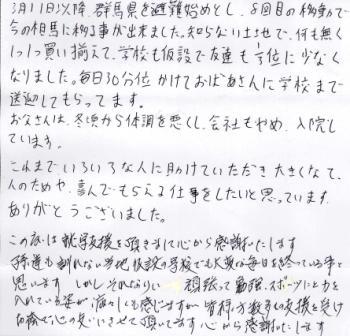 3月11日以降、群馬県を避難始めとし、8回目の移動で
今の相馬に移る事が出来ました。知らない土地で、何も無く
1つ1つ買い揃えて、学校も仮設で友達も1/3位に少なく
なりました。毎日30分位かけておばあさんに学校まで
送迎してもらってます。
お父さんは、冬頃から体調を悪くし、会社もやめ、入院し
ています。
これまでいろいろな人に助けていただき大きくなて、
人のためや、喜んでもらえる仕事をしたいと思っています。
ありがとうございました。
この度は就学支援を頂きまして心から感謝いたします
子供達も馴れない当地仮設の学校でも大変な毎日を終っている事と
思います しかしそれなりに 頑張って勉強、スポーツにと力を
入れている姿が 皆様方数多くの支援を受け
心から感謝します